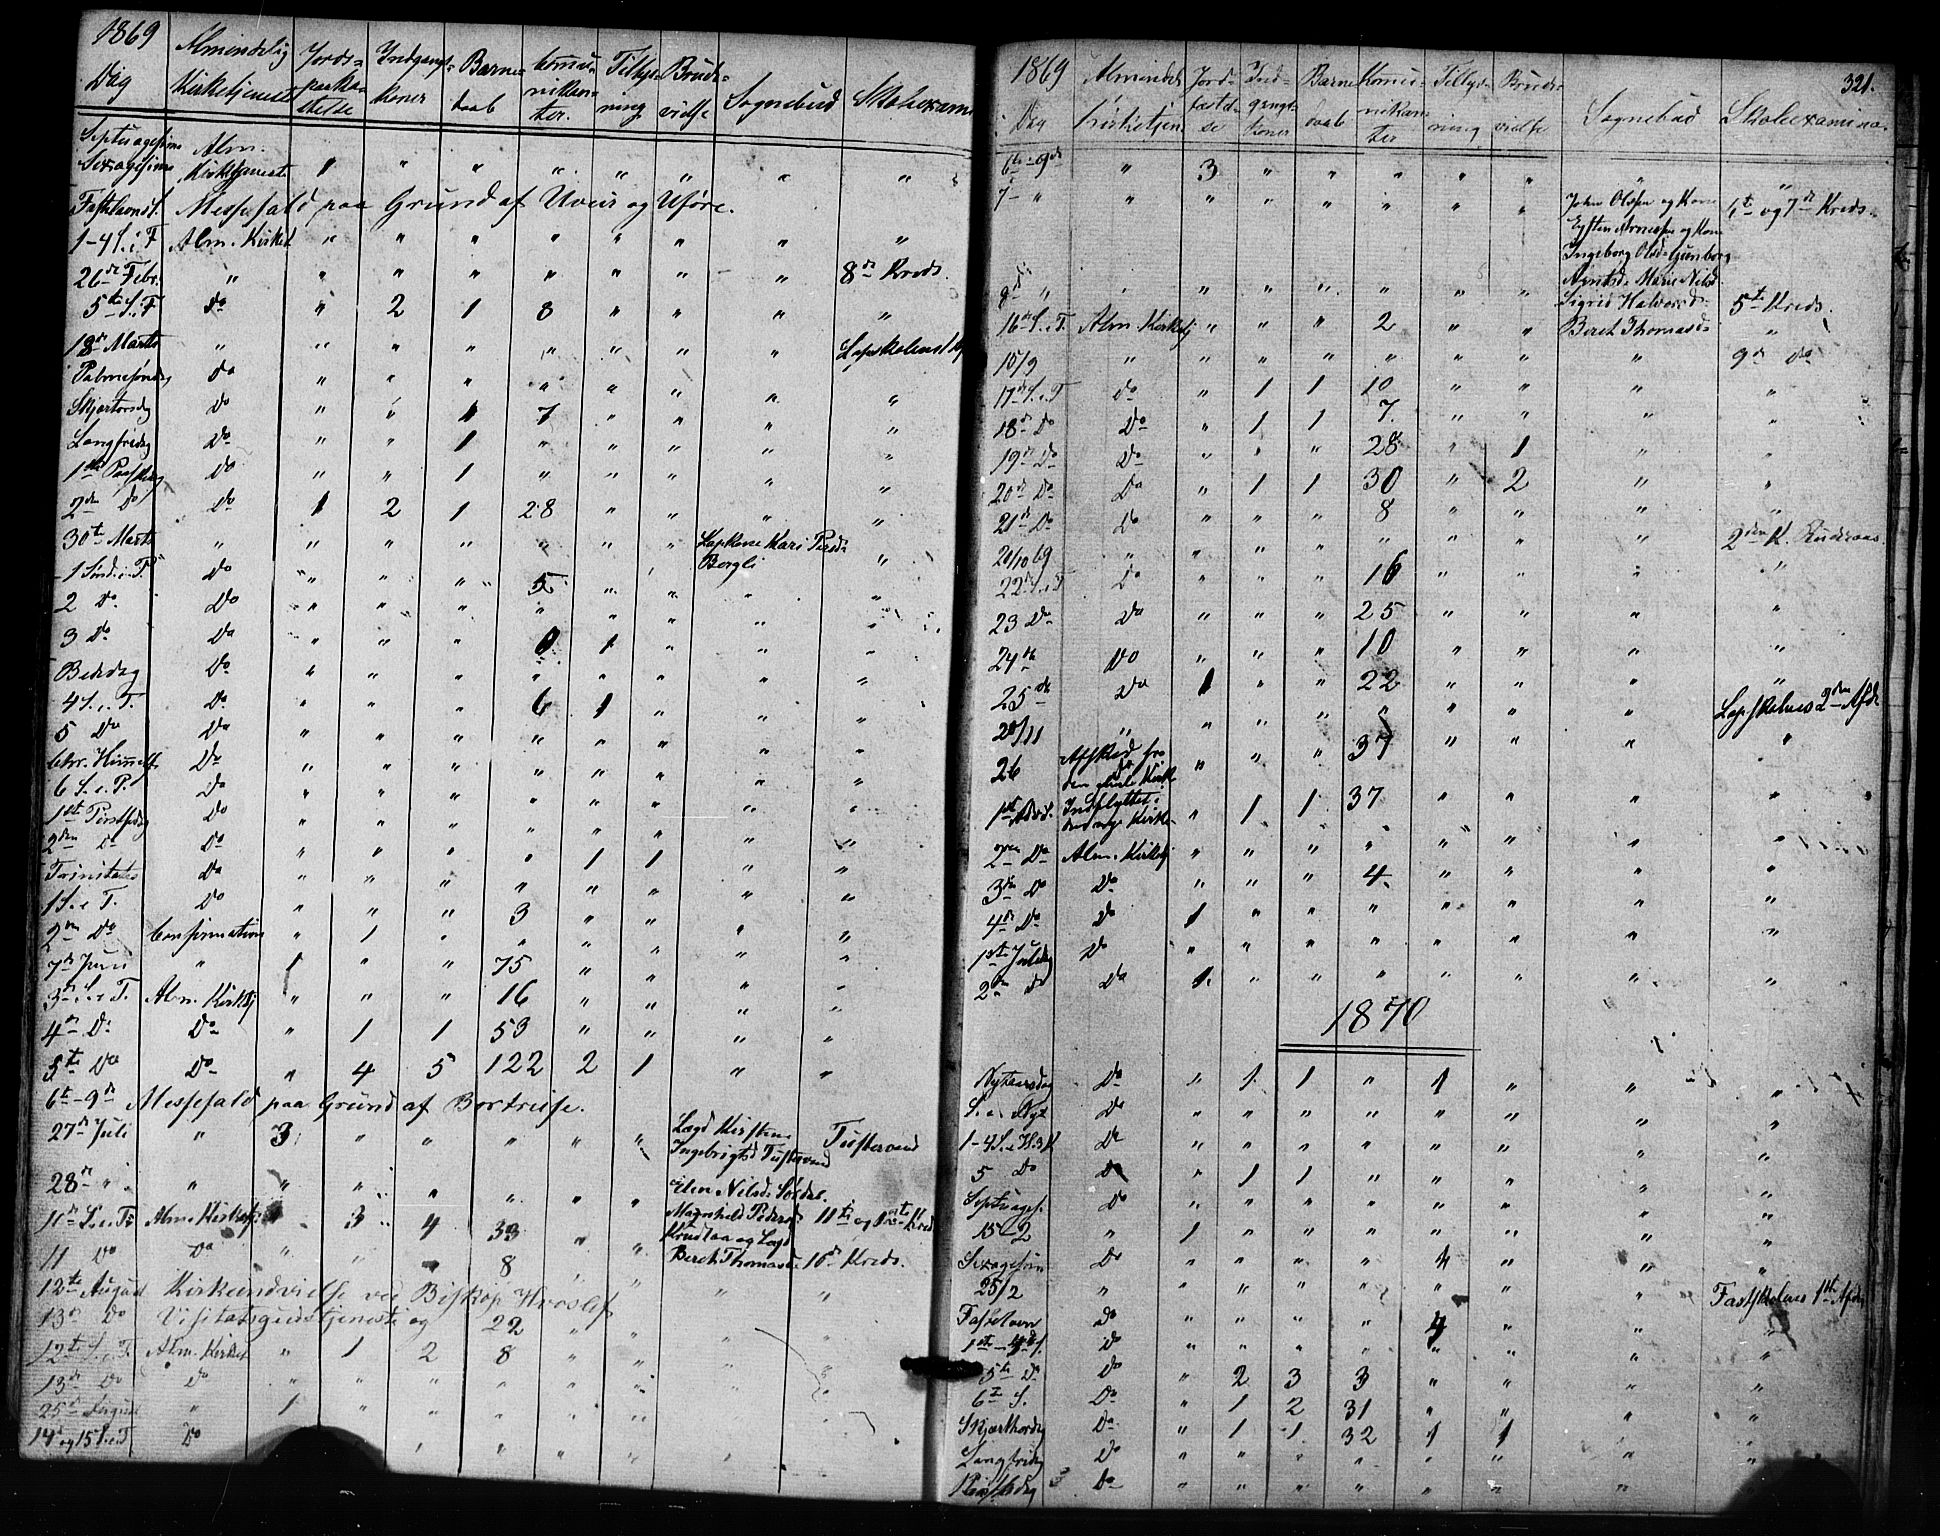 1869 Almindelig Jords- Indgangs- Barne- Comu- Tillys- Brud- Sognebud Skoleexamen
Dag Kirketjeneste paaka- koner daab nikan- ning vielse
stelse ter.
Septuagesima Alm.
Sexagesima Kirketjeneste 1 " " " " " " "
Fastelavnds. Messefald paa Grund af Uveir og Uføre.
1-4 S. i F Alm. Kirket " " " " " " " "
26de Febr. " " " " " " " " 8de Kreds.
5te S. i F Do " 2 1 8 " " " "
18de Marts " " " " " " " "
Palmesøndag Do " " " " " " " "
Skjertorsdag Do " " 1 7 " " " "
Langfredag Do " " 1 " " " " "
1ste Paaskedag Do " " 1 " " " " "
2den Do Do 1 2 1 28 " " " "
30te Marts " " " " " " " Lapkone Kari Peersd. "
Bergli
1 Sønd. i P. Do " " " 5 " " " "
2 Do Do " " " " " " " "
3 Do Do " " " 0 1 " " "
Bededag Do " " " " " " " "
4 S. e. P. Do " " " 6 1 " " "
5 Do Do " " " " " " " "
Chr. Himmelf. Do " " " " " " " "
6 S. e. P. Do " " " " " " " "
1ste Pintsedag Do " " " " " " " "
2den Do Do " " " " " " " "
Trinitatis Do " " " " 1 1 " "
1 S. e. T. Do " " " " " " " "
2den Do Confirmation " 1 " 3 " " " "
7de Juni " 1 " " 75 " " " "
3de S. e. T. Alm. Kirketj " " " 16 " " " "
4de Do Do " 1 1 53 " " " "
5te Do Do " 4 5 122 2 1 " "
6te-9de Messefald paa Grund af Bortreise.
27de Juli " 3 " " " " " Lægd Kirsten Tustervand
Ingebrigtsd Tustervand
28de " " " " " " " " Elen Nilsd. Søvdal.
11de S. e. Tr Alm. Kirketj 3 4 33 " " Magnhild Pedersd 11te og Kreds
11 Do Do " " " 8 " " Beret Thomasd. 10de Kreds.
12te August Kirkeindvielse ved Biskop Hvoslef " "
13de Do Visitatsgudstjeneste og 22 " "
12te S. e. T. Alm. Kirket " 1 2 8 " " " "
13de Do Do " " " " " " " "
25de August " 1 " " " " " "
14de og 15 S. e. T Do " " " " " "
321.
1869 Almindel. Jord- Ind- Barne Comu- Tillys- Brud- Sognebud Skoleexamina.
Dag Kirketjen. fæstel- gangs- daab nikan- ning vielse
se koner ter
6te-9de " 3 " " " " " " "
7- " " " " " " " " John Olsen og Kone 6te og 7de Kreds.
Eysten Arnesen og Kone
Ingeborg Olsd. Gunborg
Arntsd. Marie Nilsd.
8de " " " " " " " " Sigrid Halvorsd. 5te Kreds.
16de S. e. T. Alm. Kirketj " " " 2 " " Beret Thomasd. "
15/9 " " " " " " " " 9de Do
17de S. e. T Do " 1 1 10 " " " "
18de Do Do " 1 1 7. " " " "
19de Do Do " " " 28 " 1 " "
20de Do Do " 1 1 30 " 2 " "
21de Do Do " " " 8 " " " "
20/10 69 " " " " " " " " 2den K.
22de S. e. T Do " " " 16 " " " "
23 Do Do " " " 25 " " " "
24de Do " " " 10 " " " "
25de Do 1 " " 22 " " " "
20/11 " " " " " " " " Lapskolens 2den Afde
26 Afsked fra " " " 37 " " " "
den gamle Kirke
1ste Advt. Indflyttet i " 1 1 37 " " " "
den nye Kirke
2den Do Alm. Kirketj " " " " " " " "
3die Do Do " " " 4 " " " "
4de Do Do 1 " " " " " " "
1ste Juledag Do " " " " " " " "
2den Do Do 1. " " " " " " "
1870
Nytaarsdag Do " 1 1 " 1 " " "
S. e. Nyt Do " " " " " " " "
1-4 S. e. H3K Do " " " " " " " "
5 Do Do " 1 1 " " " " "
Septuages. Do " " " " " " " "
15-2 " 1 " " " " " " "
Sexagesim Do " " " " " " "
25/2 " " " " " " " " Fastskolens 1ste Afde
Fastelavn Do " " " " 4 " " "
1ste-4de S. Do " " " " " " " "
5te Do Do " 2 3 3 " " " "
6te S. Do " 1 2 31 " " " "
Skjærthorsdag Do " 1 1 32 1 1 " "
Langfredag Do " " " " " " " "
Paaskedag Do " " " " " " " "